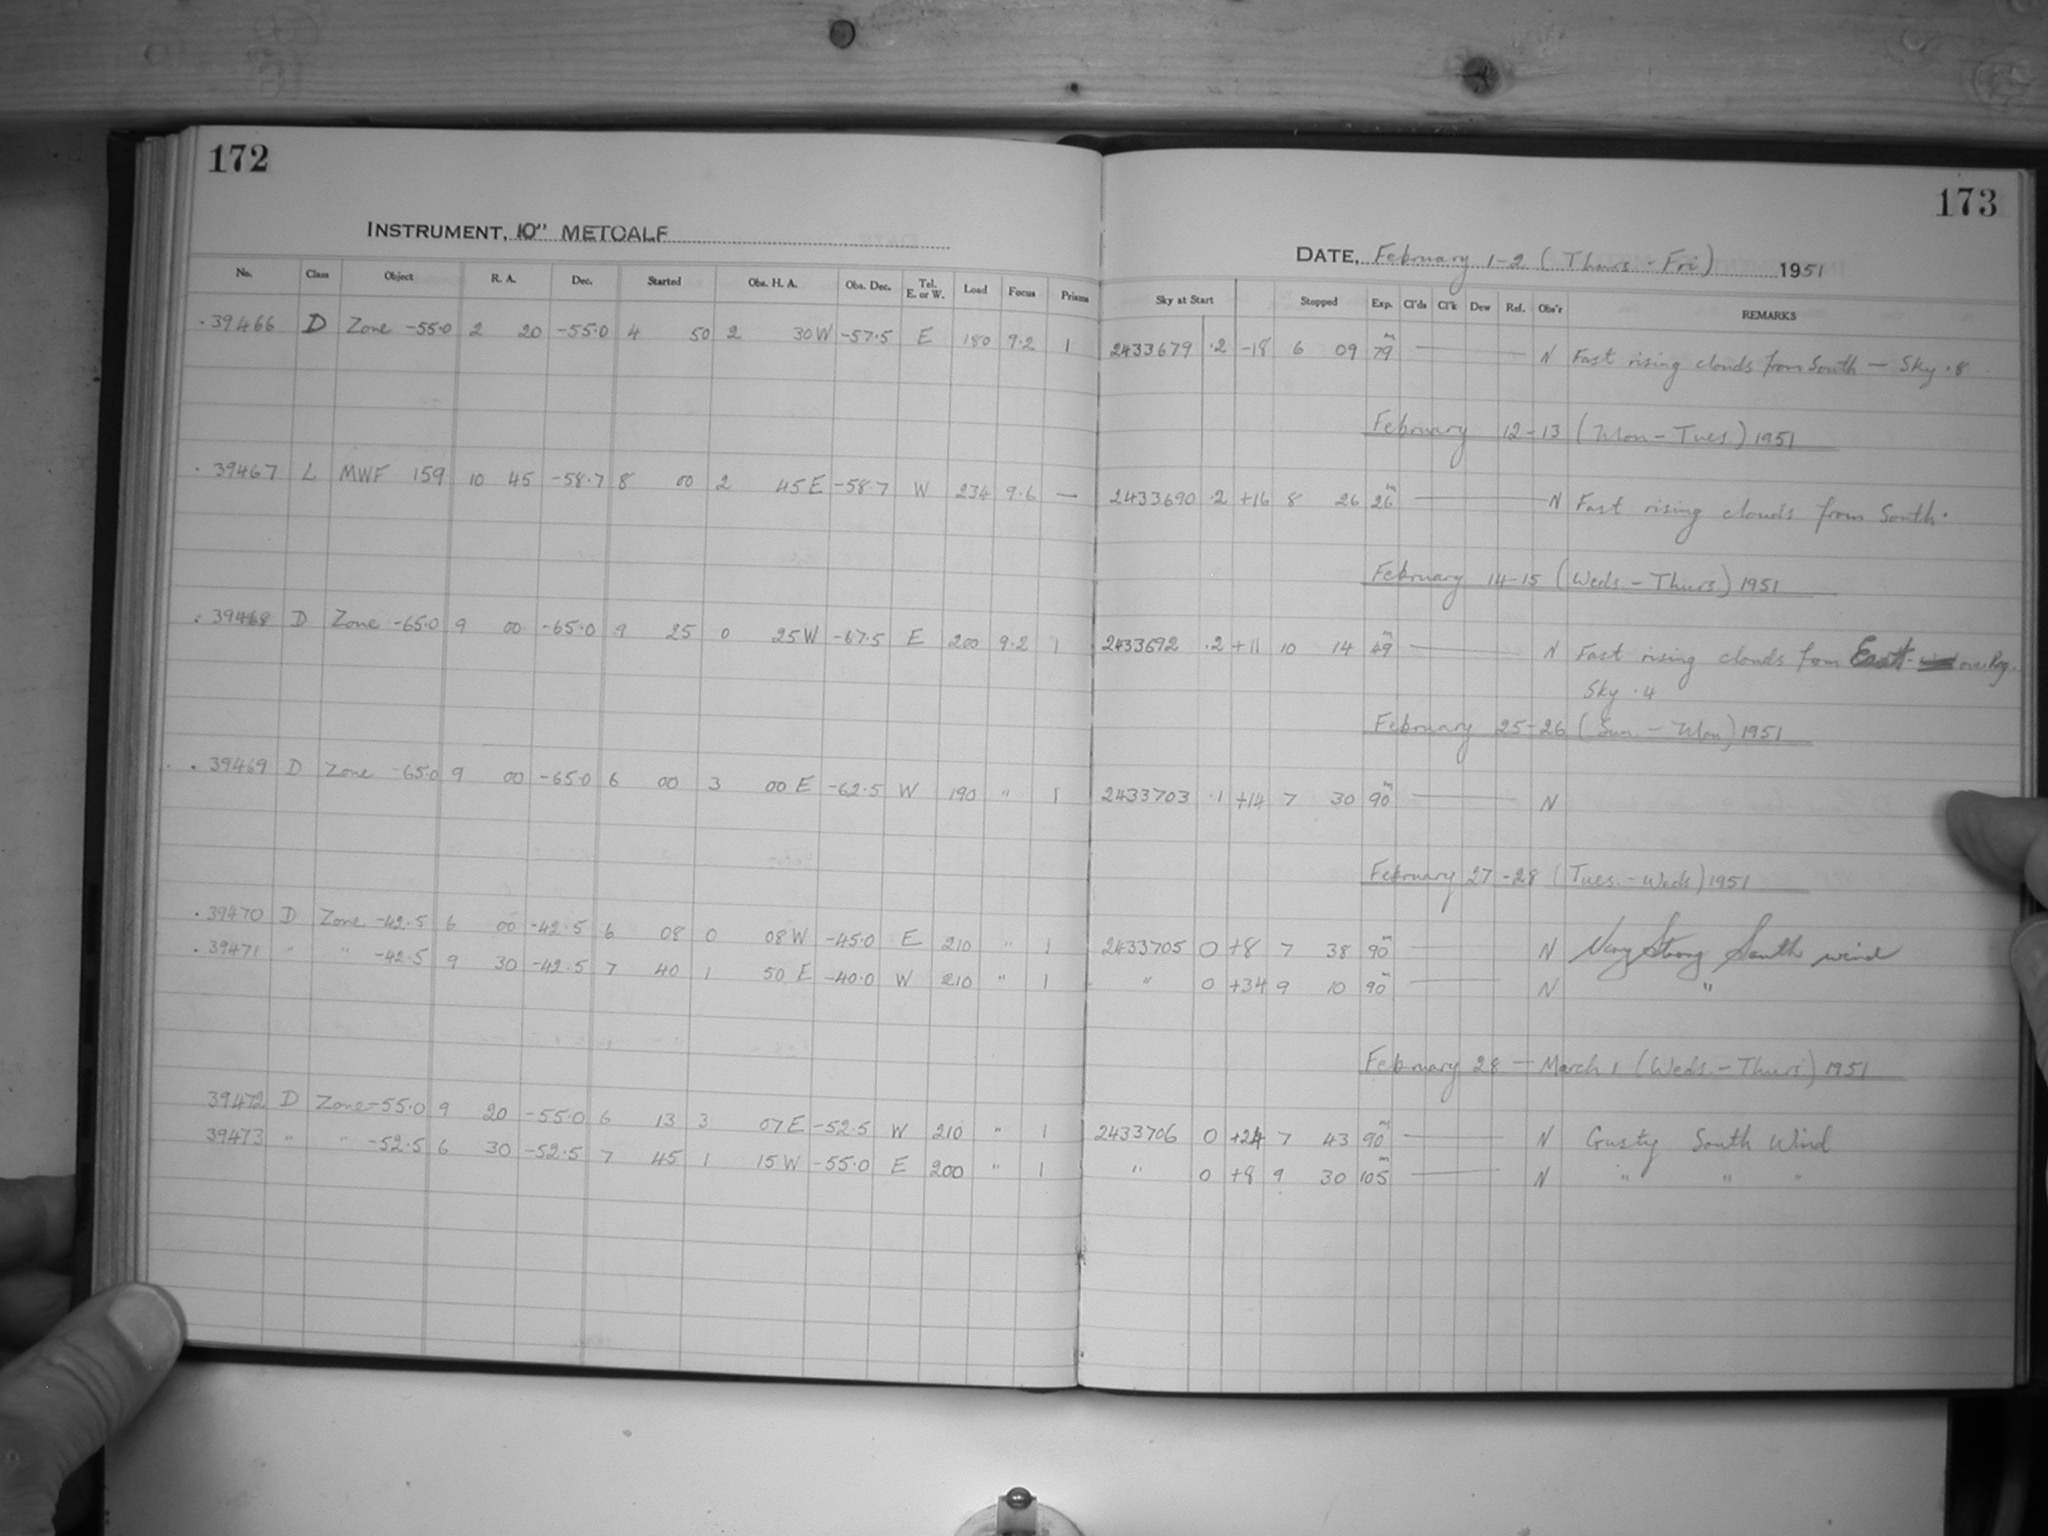 172
INSTRUMENT, 10" METCALF
No. Class Object R. A. Dec. Started Obs. H. A. Obs. Dec. Tel. E. or W. Load Focus Prisms
.39466 D Zone -55.0 2 20 -55.0 4 50 2 30 W -57.5 E 180 9.2 1
. 39467 L MWF 159 10 45 -58.7 8 00 2 45 E -58.7 W 234 9.6 —
. 39468 D Zone -65.0 9 00 -65.0 9 25 0 25 W -67.5 E 200 9.2 1
. 39469 D Zone -65.0 9 00 -65.0 6 00 3 00 E -62.5 W 190 " 1
. 39470 D Zone -42.5 6 00 -42.5 6 08 0 08 W -45.0 E 210 " 1
. 39471 " " -42.5 9 30 -42.5 7 40 1 50 E -40.0 W 210 " 1
39472 D Zone -55.0 9 20 -55.0 6 13 3 07 E -52.5 W 210 " 1
39473 " " -52.5 6 30 -52.5 7 45 1 15 W -55.0 E 200 " 1
173
DATE, February 1-2 (Thurs - Fri) 1951
Sky at Start Stopped Exp. Cl'ds Cl'k Dew Ref. Obs'r REMARKS
2433679 .2 -18 6 09 79m — N Fast rising clouds from South — Sky .8
February 12-13 (Mon - Tues) 1951
2433690 .2 +16 8 26 26m — N Fast rising clouds from South.
February 14-15 (Weds. - Thurs) 1951
2433692 .2 +11 10 14 49m — N Fast rising clouds from East over Reg.
Sky .4
February 25-26 (Sun. - Mon) 1951
2433703 .1 +14 7 30 90m — N
February 27-28 (Tues. - Weds) 1951
2433705 0 +8 7 38 90m — N Very Strong South wind
" 0 +34 9 10 90m — N "
February 28 — March 1 (Weds. - Thurs) 1951
2433706 0 +24 7 43 90m — N Gusty South Wind
" 0 +8 9 30 105m — N " " "